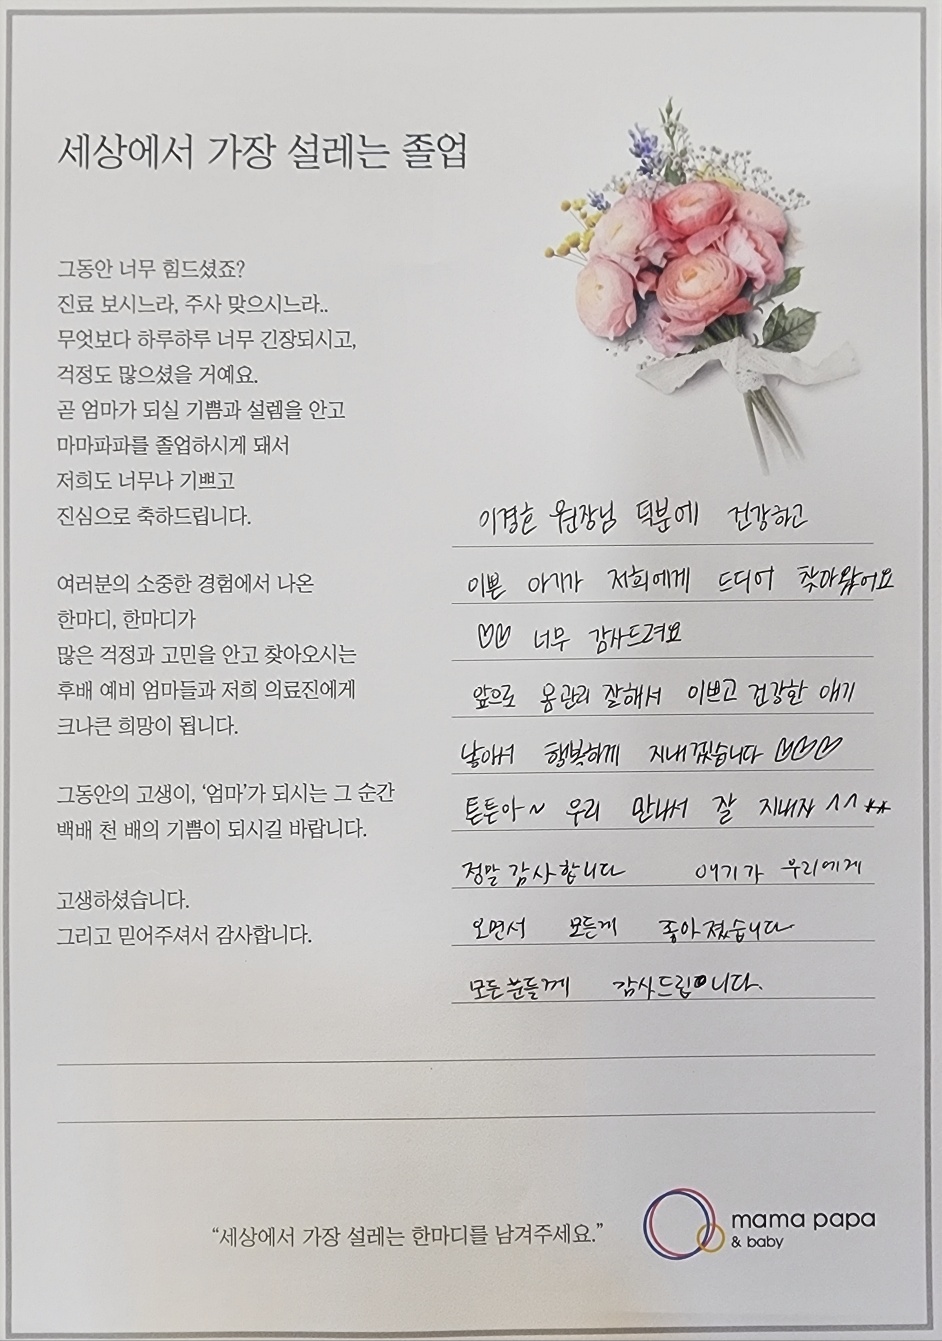 세상에서 가장 설레는 졸업
그동안 너무 힘드셨죠?
진료 보시느라, 주사 맞으시느라..
무엇보다 하루하루 너무 긴장되시고,
걱정도 많으셨을 거예요.
곧 엄마가 되실 기쁨과 설렘을 안고
마마파파를 졸업하시게 돼서
저희도 너무나 기쁘고
진심으로 축하드립니다.
여러분의 소중한 경험에서 나온
한마디, 한마디가
많은 걱정과 고민을 안고 찾아오시는
후배 예비 엄마들과 저희 의료진에게
크나큰 희망이 됩니다.
그동안의 고생이, ‘엄마’가 되시는 그 순간
백배 천 배의 기쁨이 되시길 바랍니다.
고생하셨습니다.
그리고 믿어주셔서 감사합니다.
이경호 원장님 덕분에 건강하고
이쁜 아기가 저희에게 드디어 찾아왔어요
♡♡ 너무 감사드려요
앞으로 몸관리 잘해서 이쁘고 건강한 애기
낳아서 행복하게 지내겠습니다 ♡♡♡
튼튼아~ 우리 만나서 잘 지내자 ^^ **
정말 감사합니다 애기가 우리에게
오면서 모든게 좋아졌습니다
모든분들께 감사드립니다.
“세상에서 가장 설레는 한마디를 남겨주세요.”
mama papa
& baby